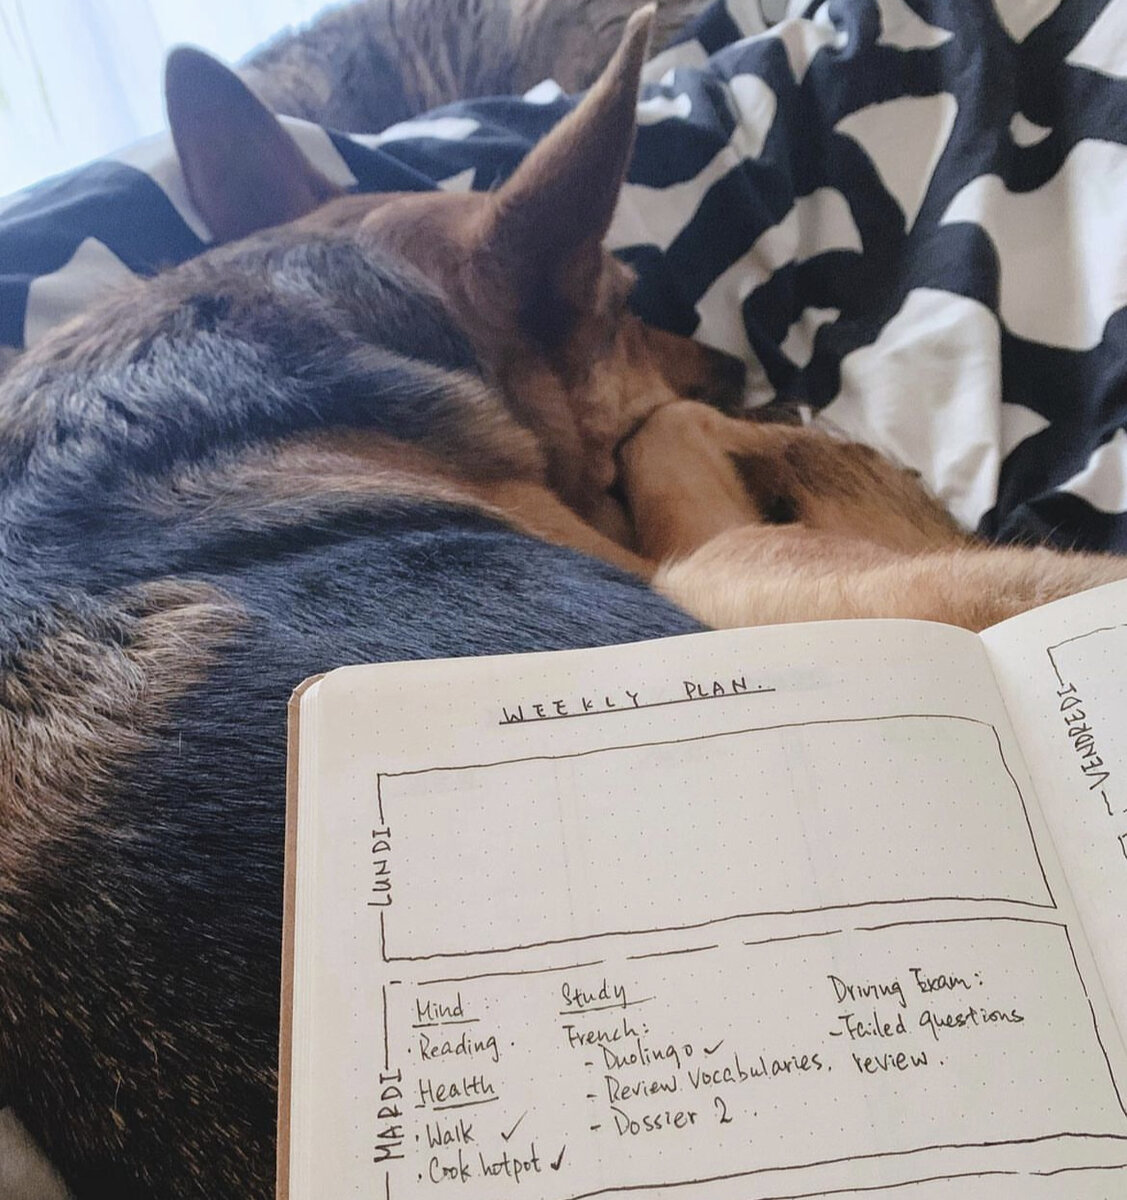 WEEKLY PLAN.
LUNDI
MARDI
Mind :
· Reading .
Health
· Walk ✓
· Cook hotpot ✓
Study
French:
- Duolingo ✓
- Review Vocabularies.
- Dossier 2 .
Driving Exam:
- Failed questions
review .
VENDREDI